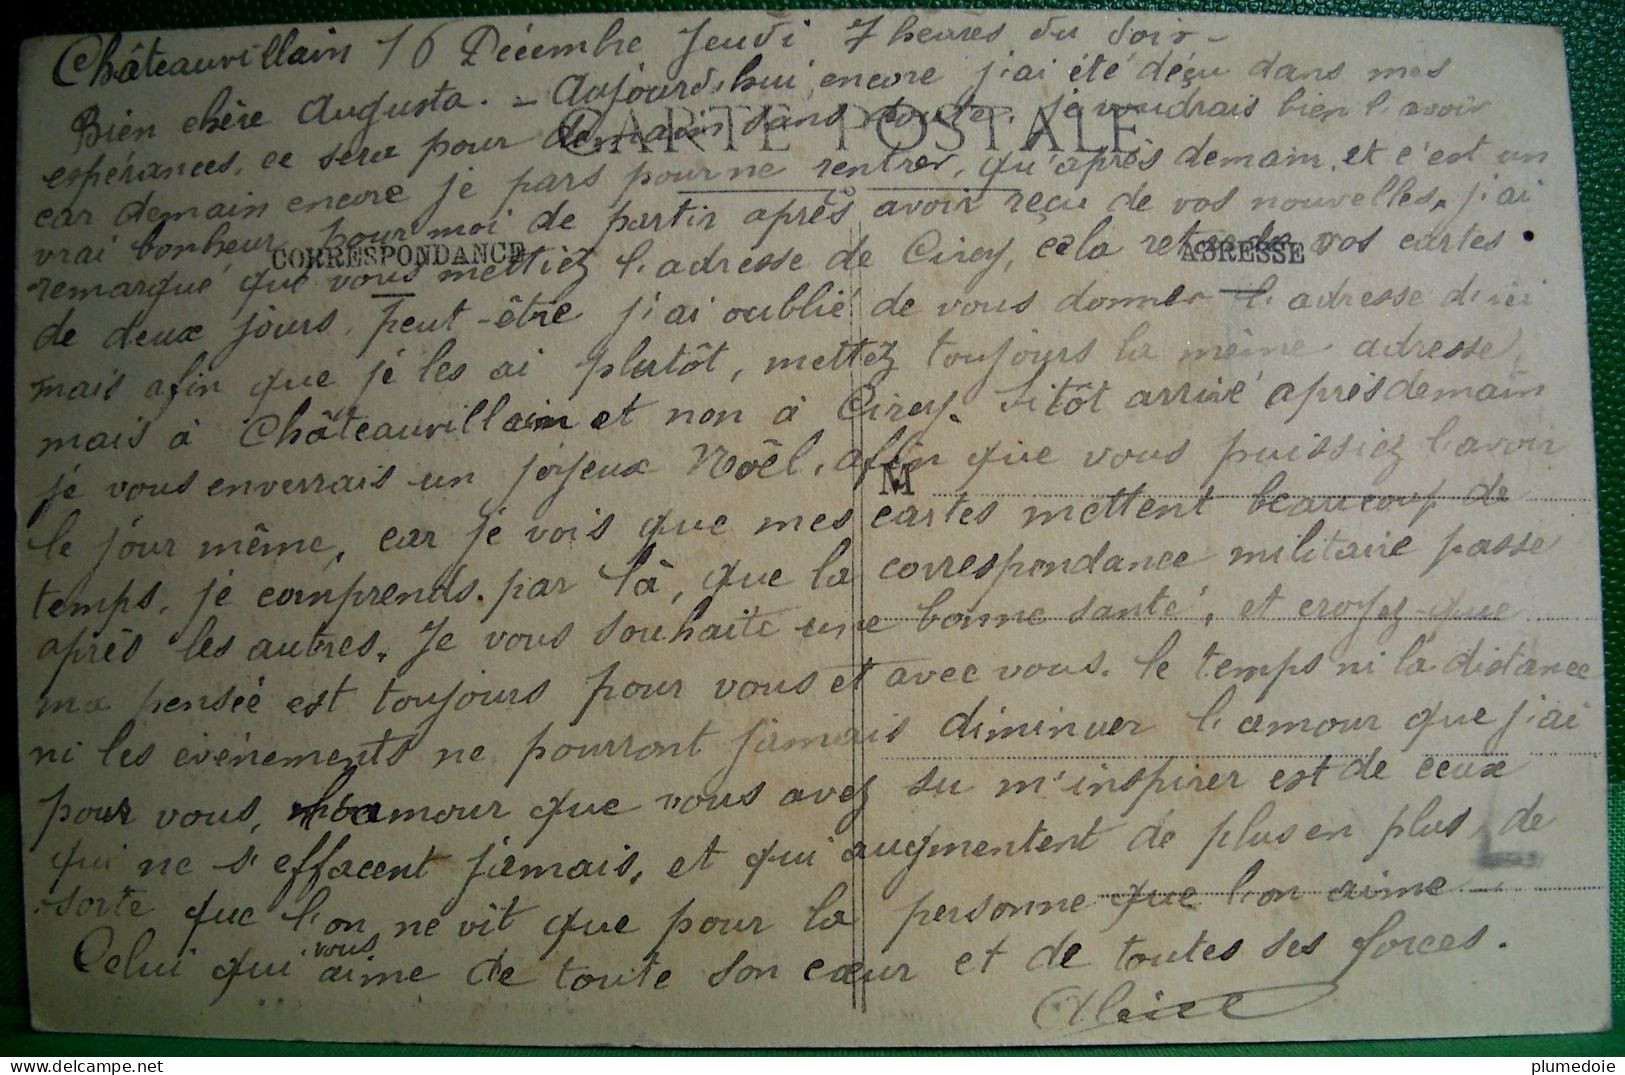 Châteauvillain 16 Décembre Jeudi 7 heures du soir -
Bien chère Augusta. - Aujourd'hui encore j'ai été déçu dans mes
CARTE POSTALE
espérances, ce sera pour demain sans doute, je voudrais bien l'avoir
car demain encore je pars pour ne rentrer, qu'après demain, et c'est un
vrai bonheur pour moi de partir après avoir reçu de vos nouvelles, j'ai
CORRESPONDANCE
ADRESSE
remarqué que vous mettiez l'adresse de Cirey, cela retarde vos cartes
de deux jours, Peut-être j'ai oublié de vous donner l'adresse d'ici
mais afin que je les ai plutôt, mettez toujours la même adresse,
mais à Châteauvillain et non à Cirey. Sitôt arrivé après demain
je vous enverrais un joyeux Noêl, afin que vous puissiez l'avoir
M
le jour même, car je vois que mes cartes mettent beaucoup de
temps, je comprends par là, que la correspondance militaire passe
après les autres, Je vous souhaite une bonne santé, et croyez que
ma pensée est toujours pour vous et avec vous. le temps ni la distance
ni les événements ne pourront jamais diminuer l'amour que j'ai
pour vous, l'amour que vous avez su m'inspirer est de ceux
qui ne s'effacent jamais, et qui augmentent de plus en plus, de
sorte que l'on ne vit que pour la personne que l'on aime
Celui qui vous aime de toute son cœur et de toutes ses forces.
plumedoie